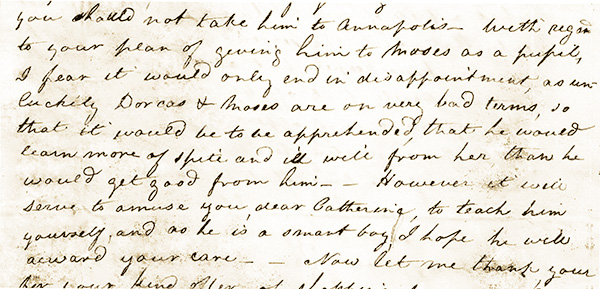 you should not take him to Annapolis — With regard
to your plan of giving him to Moses as a pupil,
I fear it would only end in disappointment, as un-
luckily Dorcas & Moses are on very bad terms, so
that it would be to be apprehended, that he would
learn more of spite and ill will from her than he
would get good from him — — However it will
serve to amuse you, dear Catherine, to teach him
yourself, and as he is a smart boy, I hope he will
reward your care — — Now let me thank you
for your kind offer of